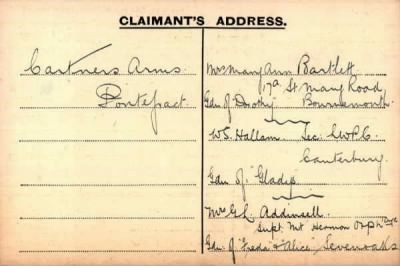 CLAIMANT'S ADDRESS.
Cartners Arms
Pontefact
Mrs Mary Ann Bartlett
17a St. Mary Road
Gdn of Dorothy Bournemouth
W.S. Hallam Sec. C.W.P.C.
Canterbury.
Gdn of "Gladys"
Mrs G.L. Addinsell.
Supt. Mt Hermon Orph
Gdn of "Freda" & "Alice", Sevenoaks